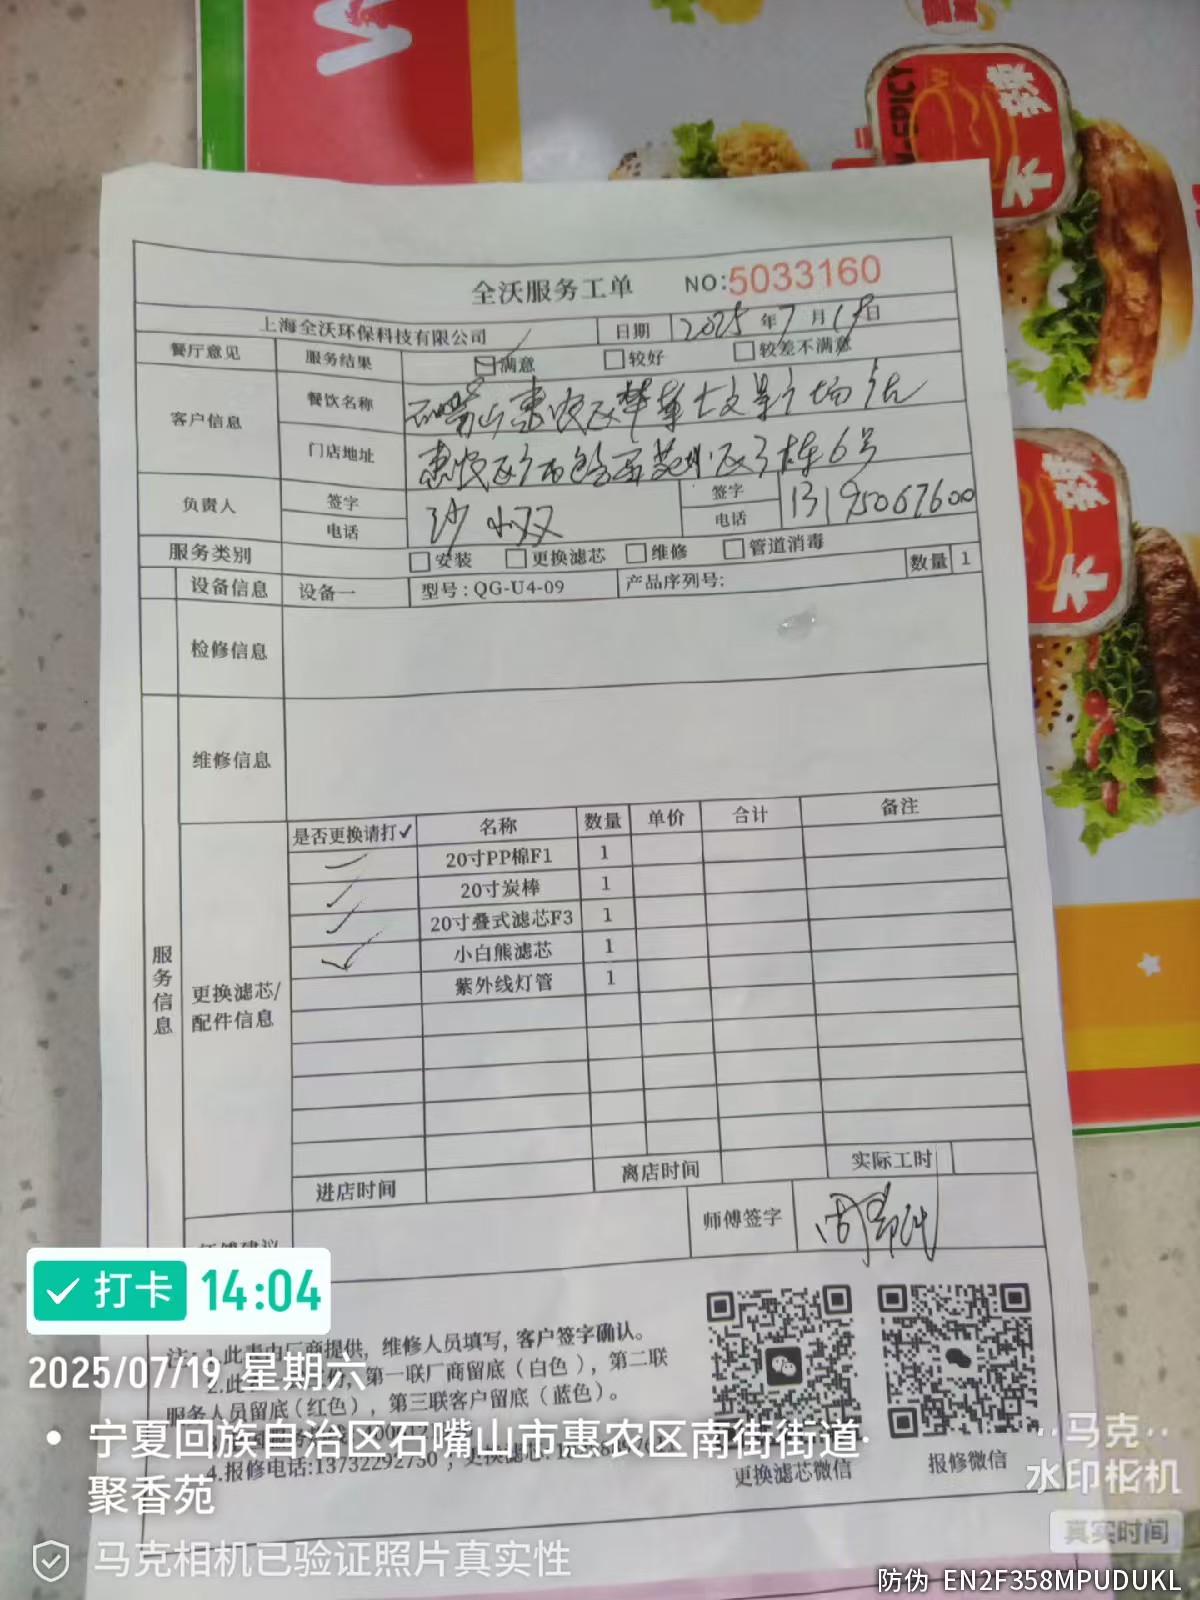 辣
不
辣
不
全沃服务工单 NO:5033160
上海全沃环保科技有限公司 日期 2025年7月19日
餐厅意见 服务结果 满意 较好 较差不满意
客户信息 餐饮名称 石嘴山惠农区华莘士文景广场店
门店地址
负责人 签字 沙小双 签字
电话 电话 13195067600
服务类别 安装 更换滤芯 维修 管道消毒
设备信息 设备一 型号:QG-U4-09 产品序列号: 数量 1
检修信息
维修信息
服务信息
更换滤芯/
配件信息
是否更换请打✓ 名称 数量 单价 合计 备注
✓ 20寸PP棉F1 1
✓ 20寸炭棒 1
✓ 20寸叠式滤芯F3 1
✓ 小白熊滤芯 1
紫外线灯管 1
进店时间 离店时间 实际工时
师傅签字
打卡 14:04
2025/07/19 星期六
宁夏回族自治区石嘴山市惠农区南街街道·
聚香苑
马克相机已验证照片真实性
提供，维修人员填写，客户签字确认。
第一联厂商留底（白色），第二联
服务人员留底（红色），第三联客户留底（蓝色）。
4.报修电话:13732292750
更换滤芯微信
报修微信
马克
水印相机
真实时间
防伪 EN2F358MPUDUKL